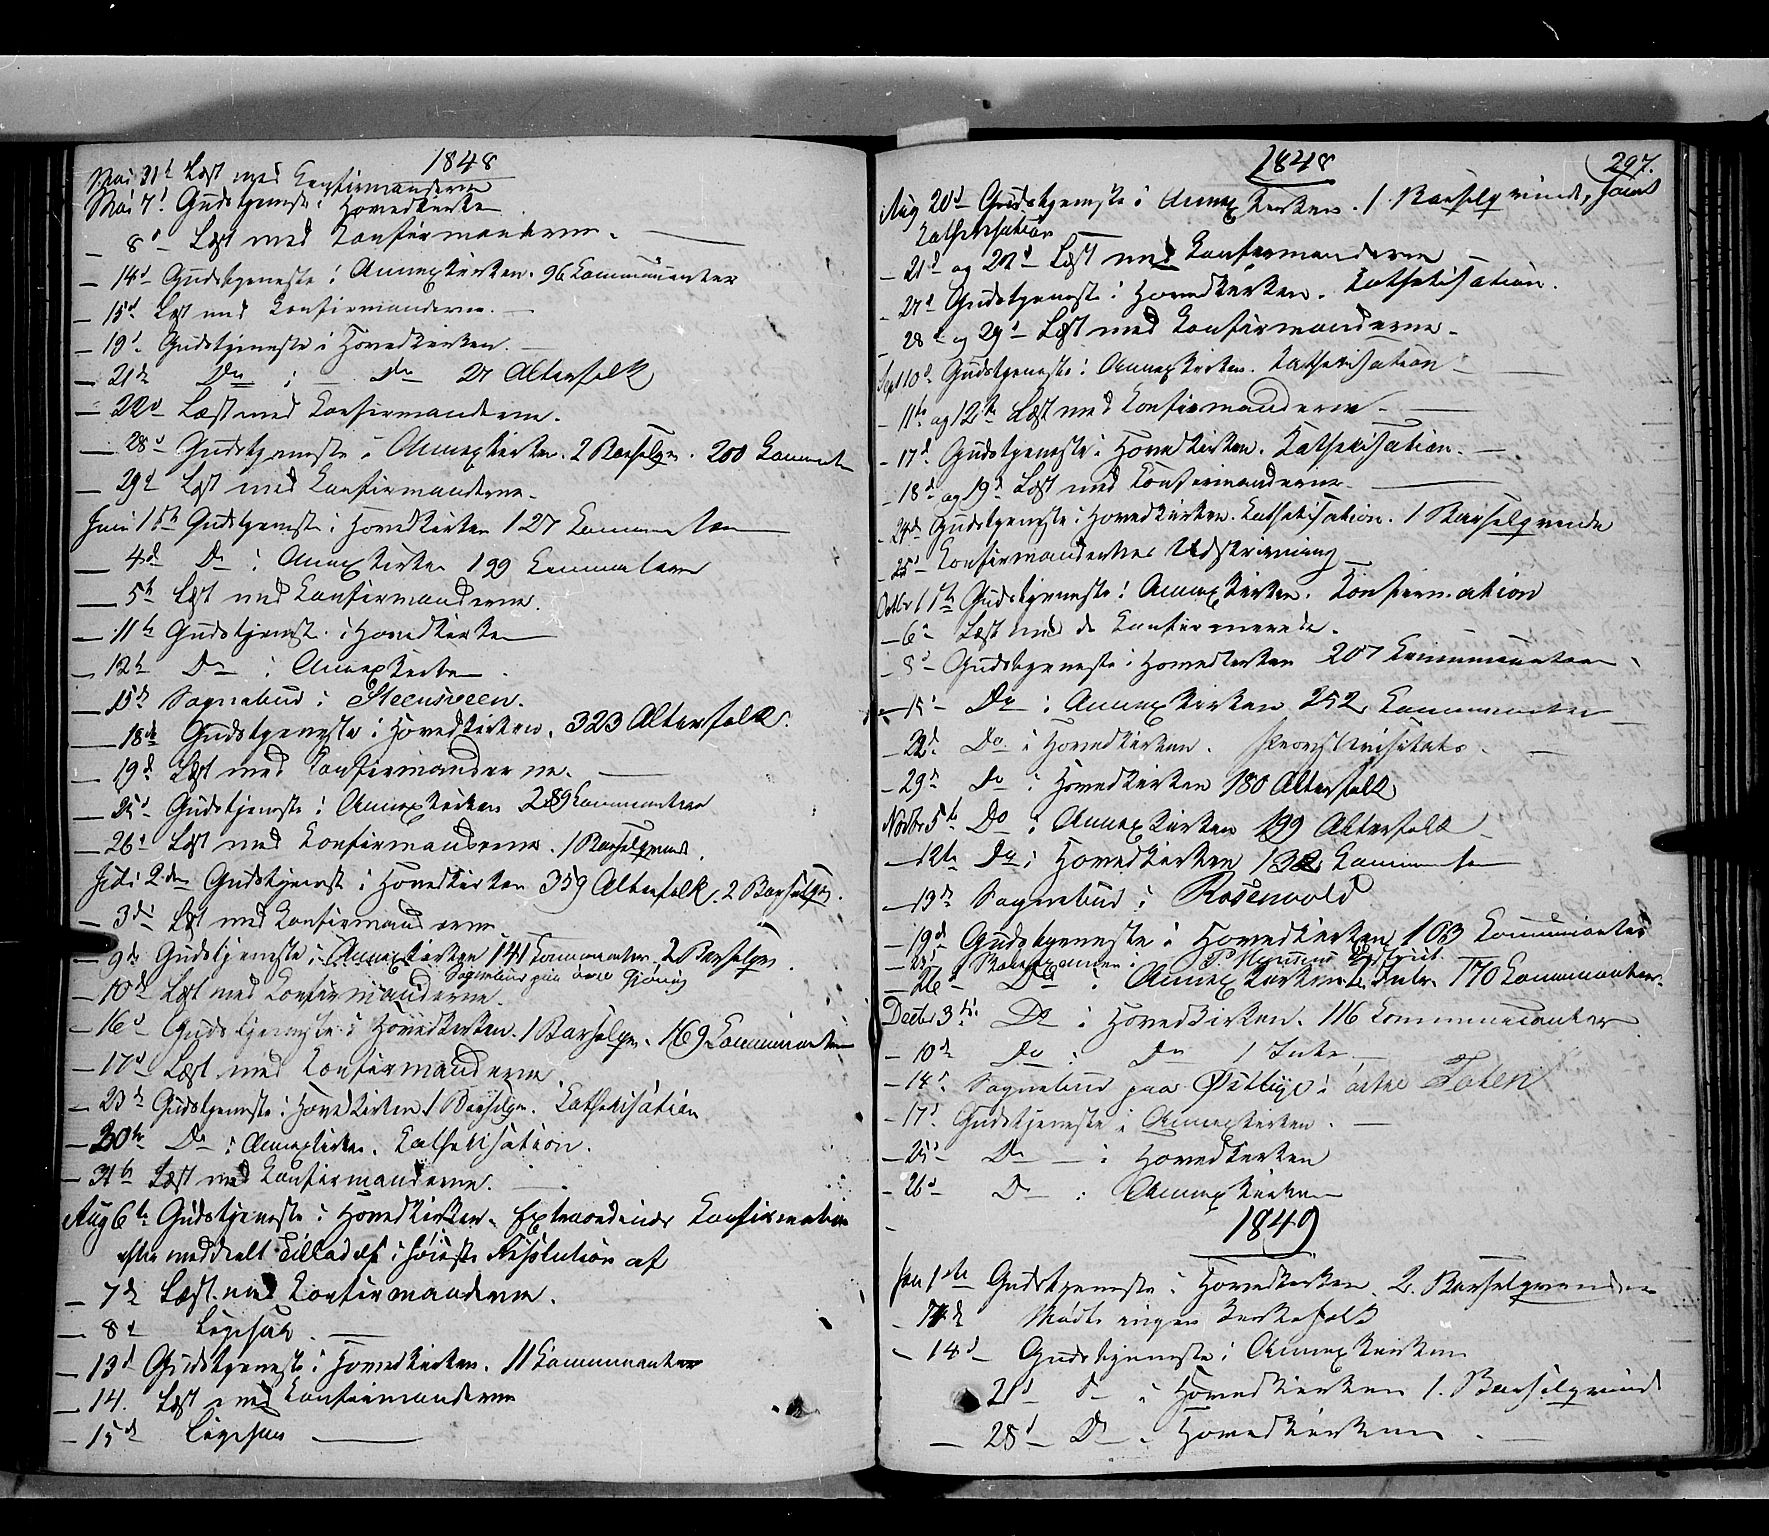 1848
Mai 31t Læst med Confirmanderne
Mai 7d Gudstjeneste i Hovedkirken
— 8d Læst med Confirmanderne.
— 14d Gudstjeneste i Annexkirken. 96 Communicanter
— 15d Læst med Confirmanderne.
— 19d Gudstjeneste i Hovedkirken.
— 21de Do i — Do 27 Altersfolk
— 22d Læst med Confirmanderne.
— 28d Gudstjeneste i Annexkirken. 2 Barselqv. 200 Commun
— 29d Læst med Confirmanderne.
Juni 1ste Gudstjeneste i Hovedkirken 127 Communicanter
— 4d Do i Annexkirken 199 Communicanter
— 5t Læst med Confirmanderne.
— 11te Gudstjeneste i Hovedkirken
— 12t Do i Annexkirken.
— 15de Sognebud i Steensveen.
— 18de Gudstjeneste i Hovedkirken. 323 Altersfolk.
— 19d Læst med Confirmanderne.
— 25d Gudstjeneste i Annexkirken 289 Communicanter
— 26d Læst med Confirmanderne. 1 Barselqvinde.
Juli 2den Gudstjeneste i Hovedkirken 359 Altersfolk. 2 Barselqv.
— 3die Læst med Confirmanderne
— 9de Gudstjeneste i Annexkirken 141 Communicanter. 2 Barselqv.
— 10de Læst med Confirmanderne. Sognebud paa øvre Gjøvig
— 16d Gudstjeneste i Hovedkirken. 1 Barselqv. 169 Communicanter
— 17d Læst med Confirmanderne
— 23de Gudstjeneste i Hovedkirken 1 Barselqv. Cathekisation
— 30te Do i Annexkirken. Cathekisation.
— 31te Læst med Confirmanderne.
Aug 6te Gudstjeneste i Hovedkirken. Extraordinær Confirmation
efter meddeelt Tilladelse i høieste Resolution af
— 7de Læst med Confirmanderne.
— 8d Ligesaa.
— 13d Gudstjeneste i Hovedkirken. 11 Communicanter
— 14. Læst med Confirmanderne
— 15de Ligesaa
1848
297.
Aug 20d Gudstjeneste i Annexkirken. 1 Barselqvinde, samt
Cathekisation
— 21d og 22d Læst med Confirmanderne
— 27d Gudstjeneste i Hovedkirken. Cathekisation.
— 28d og 29d Læst med Confirmanderne.
Sept 10d Gudstjeneste i Annexkirken. Cathekisation
— 11te og 12te Læst med Confirmanderne.
— 17d Gudstjeneste i Hovedkirken. Cathekisation.
— 18d og 19d Læst med Confirmanderne
— 24de Gudstjeneste i Hovedkirken. Cathekisation. 1 Barselqvinde
— 25d Confirmandernes Udskrivning
Octbr 1ste Gudstjeneste i Annexkirken. Confirmation
— 6d Læst med de Confirmerede.
— 8d Gudstjeneste i Hovedkirken 207 Communicanter
— 15d Do i Annexkirken 252 Communicanter
— 22d Do i Hovedkirken. Provstevisitats
— 29d Do i Hovedkirken 180 Altersfolk
Novbr 5te Do i Annexkirken 199 Altersfolk
— 12te Do i Hovedkirken 132 Communicanter
— 13de Sognebud i Rosenvold
— 19d Gudstjeneste i Hovedkirken 103 Communicanter
— 26d Do i Annexkirken 170 Communicanter.
Decbr 3die Do i Hovedkirken. 116 Communicanter
— 10de Do i Do 1
— 14d Sognebud paa Østbye i østre Toten
— 17d Gudstjeneste i Annexkirken.
— 25d Do — i Hovedkirken
— 26d Do i Annexkirken
1849
Jan 1ste Gudstjeneste i Hovedkirken. 2 Barselqvinder
— 7de Mødte ingen Kirkefolk
— 14d Gudstjeneste i Annexkirken
21d Do i Hovedkirken 1. Barselqvinde
— 28d Do i Hovedkirken